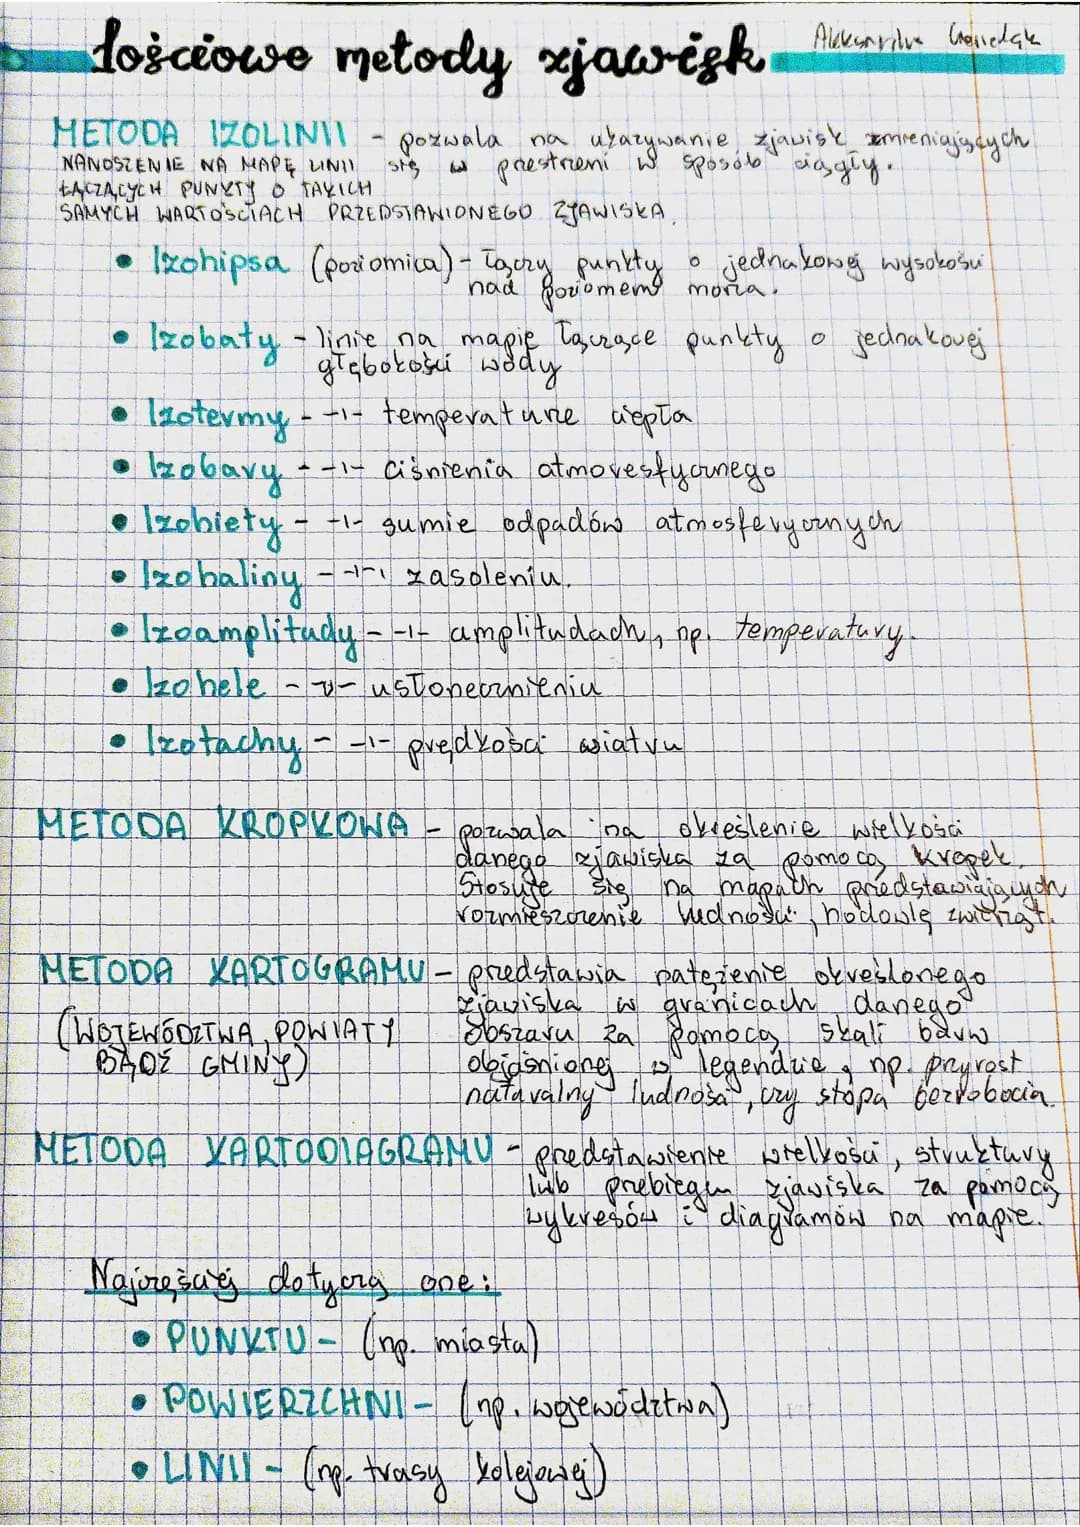 Ilościowe metody zjawisk
METODA IZOLINII - pozwala na ukazywanie zjawisk zmieniających
NANOSZENIE NA MAPĘ LINII się w przestrzeni w sposób ciągły.
ŁĄCZĄCYCH PUNKTY O TAKICH
SAMYCH WARTOŚCIACH PRZEDSTAWIONEGO ZJAWISKA.
• Izohipsa (poziomica) - łączy punkty o jednakowej wysokości
nad poziomem morza.
• Izobaty - linie na mapie łączące punkty o jednakowej
głębokości wody
• Izotermy - -||- temperaturze ciepła
• Izobary - -||- ciśnienia atmoresfycznego
• Izohiety - -||- sumie odpadów atmosferycznych
• Izohaliny - -||- zasoleniu.
• Izoamplitudy - -||- amplitudach, np. temperatury.
• Izohele - -||- usłonecznieniu
• Izotachy - -||- prędkości wiatru
METODA KROPKOWA - pozwala na określenie wielkości
danego zjawiska za pomocą kropek.
Stosuje się na mapach przedstawiających
rozmieszczenie ludności, hodowlę zwierząt.
METODA KARTOGRAMU - przedstawia natężenie określonego
zjawiska w granicach danego
(WOJEWÓDZTWA, POWIATY obszaru za pomocą skali barw
BĄDŹ GMINY) objaśnionej w legendzie, np. przyrost
naturalny ludności, czy stopa bezrobocia.
METODA KARTODIAGRAMU - przedstawienie wielkości, struktury
lub przebiegu zjawiska za pomocą
wykresów i diagramów na mapie.
Najczęściej dotyczą one:
• PUNKTU - (np. miasta)
• POWIERZCHNI - (np. województwa)
• LINII - (np. trasy kolejowej)